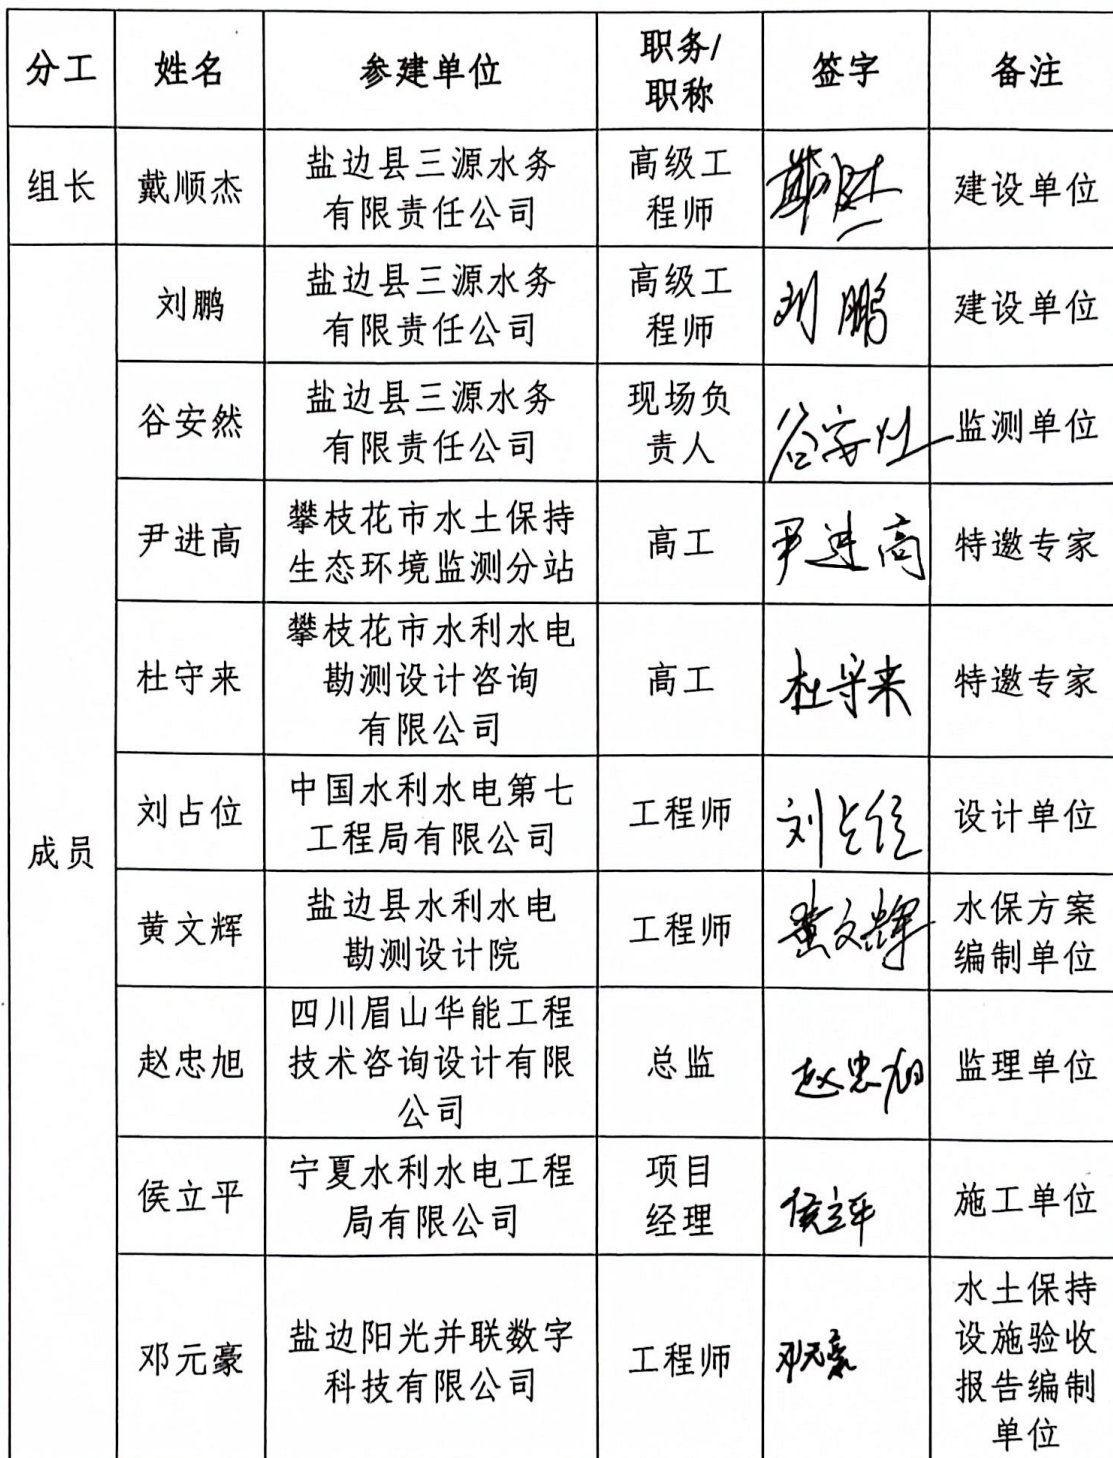 分工 姓名 参建单位 职务/职称 签字 备注
组长 戴顺杰 盐边县三源水务有限责任公司 高级工程师 建设单位
成员
刘鹏 盐边县三源水务有限责任公司 高级工程师 刘鹏 建设单位
谷安然 盐边县三源水务有限责任公司 现场负责人 谷安然 监测单位
尹进高 攀枝花市水土保持生态环境监测分站 高工 尹进高 特邀专家
杜守来 攀枝花市水利水电勘测设计咨询有限公司 高工 杜守来 特邀专家
刘占位 中国水利水电第七工程局有限公司 工程师 刘占位 设计单位
黄文辉 盐边县水利水电勘测设计院 工程师 黄文辉 水保方案编制单位
赵忠旭 四川眉山华能工程技术咨询设计有限公司 总监 赵忠旭 监理单位
侯立平 宁夏水利水电工程局有限公司 项目经理 侯立平 施工单位
邓元豪 盐边阳光并联数字科技有限公司 工程师 邓元豪 水土保持设施验收报告编制单位